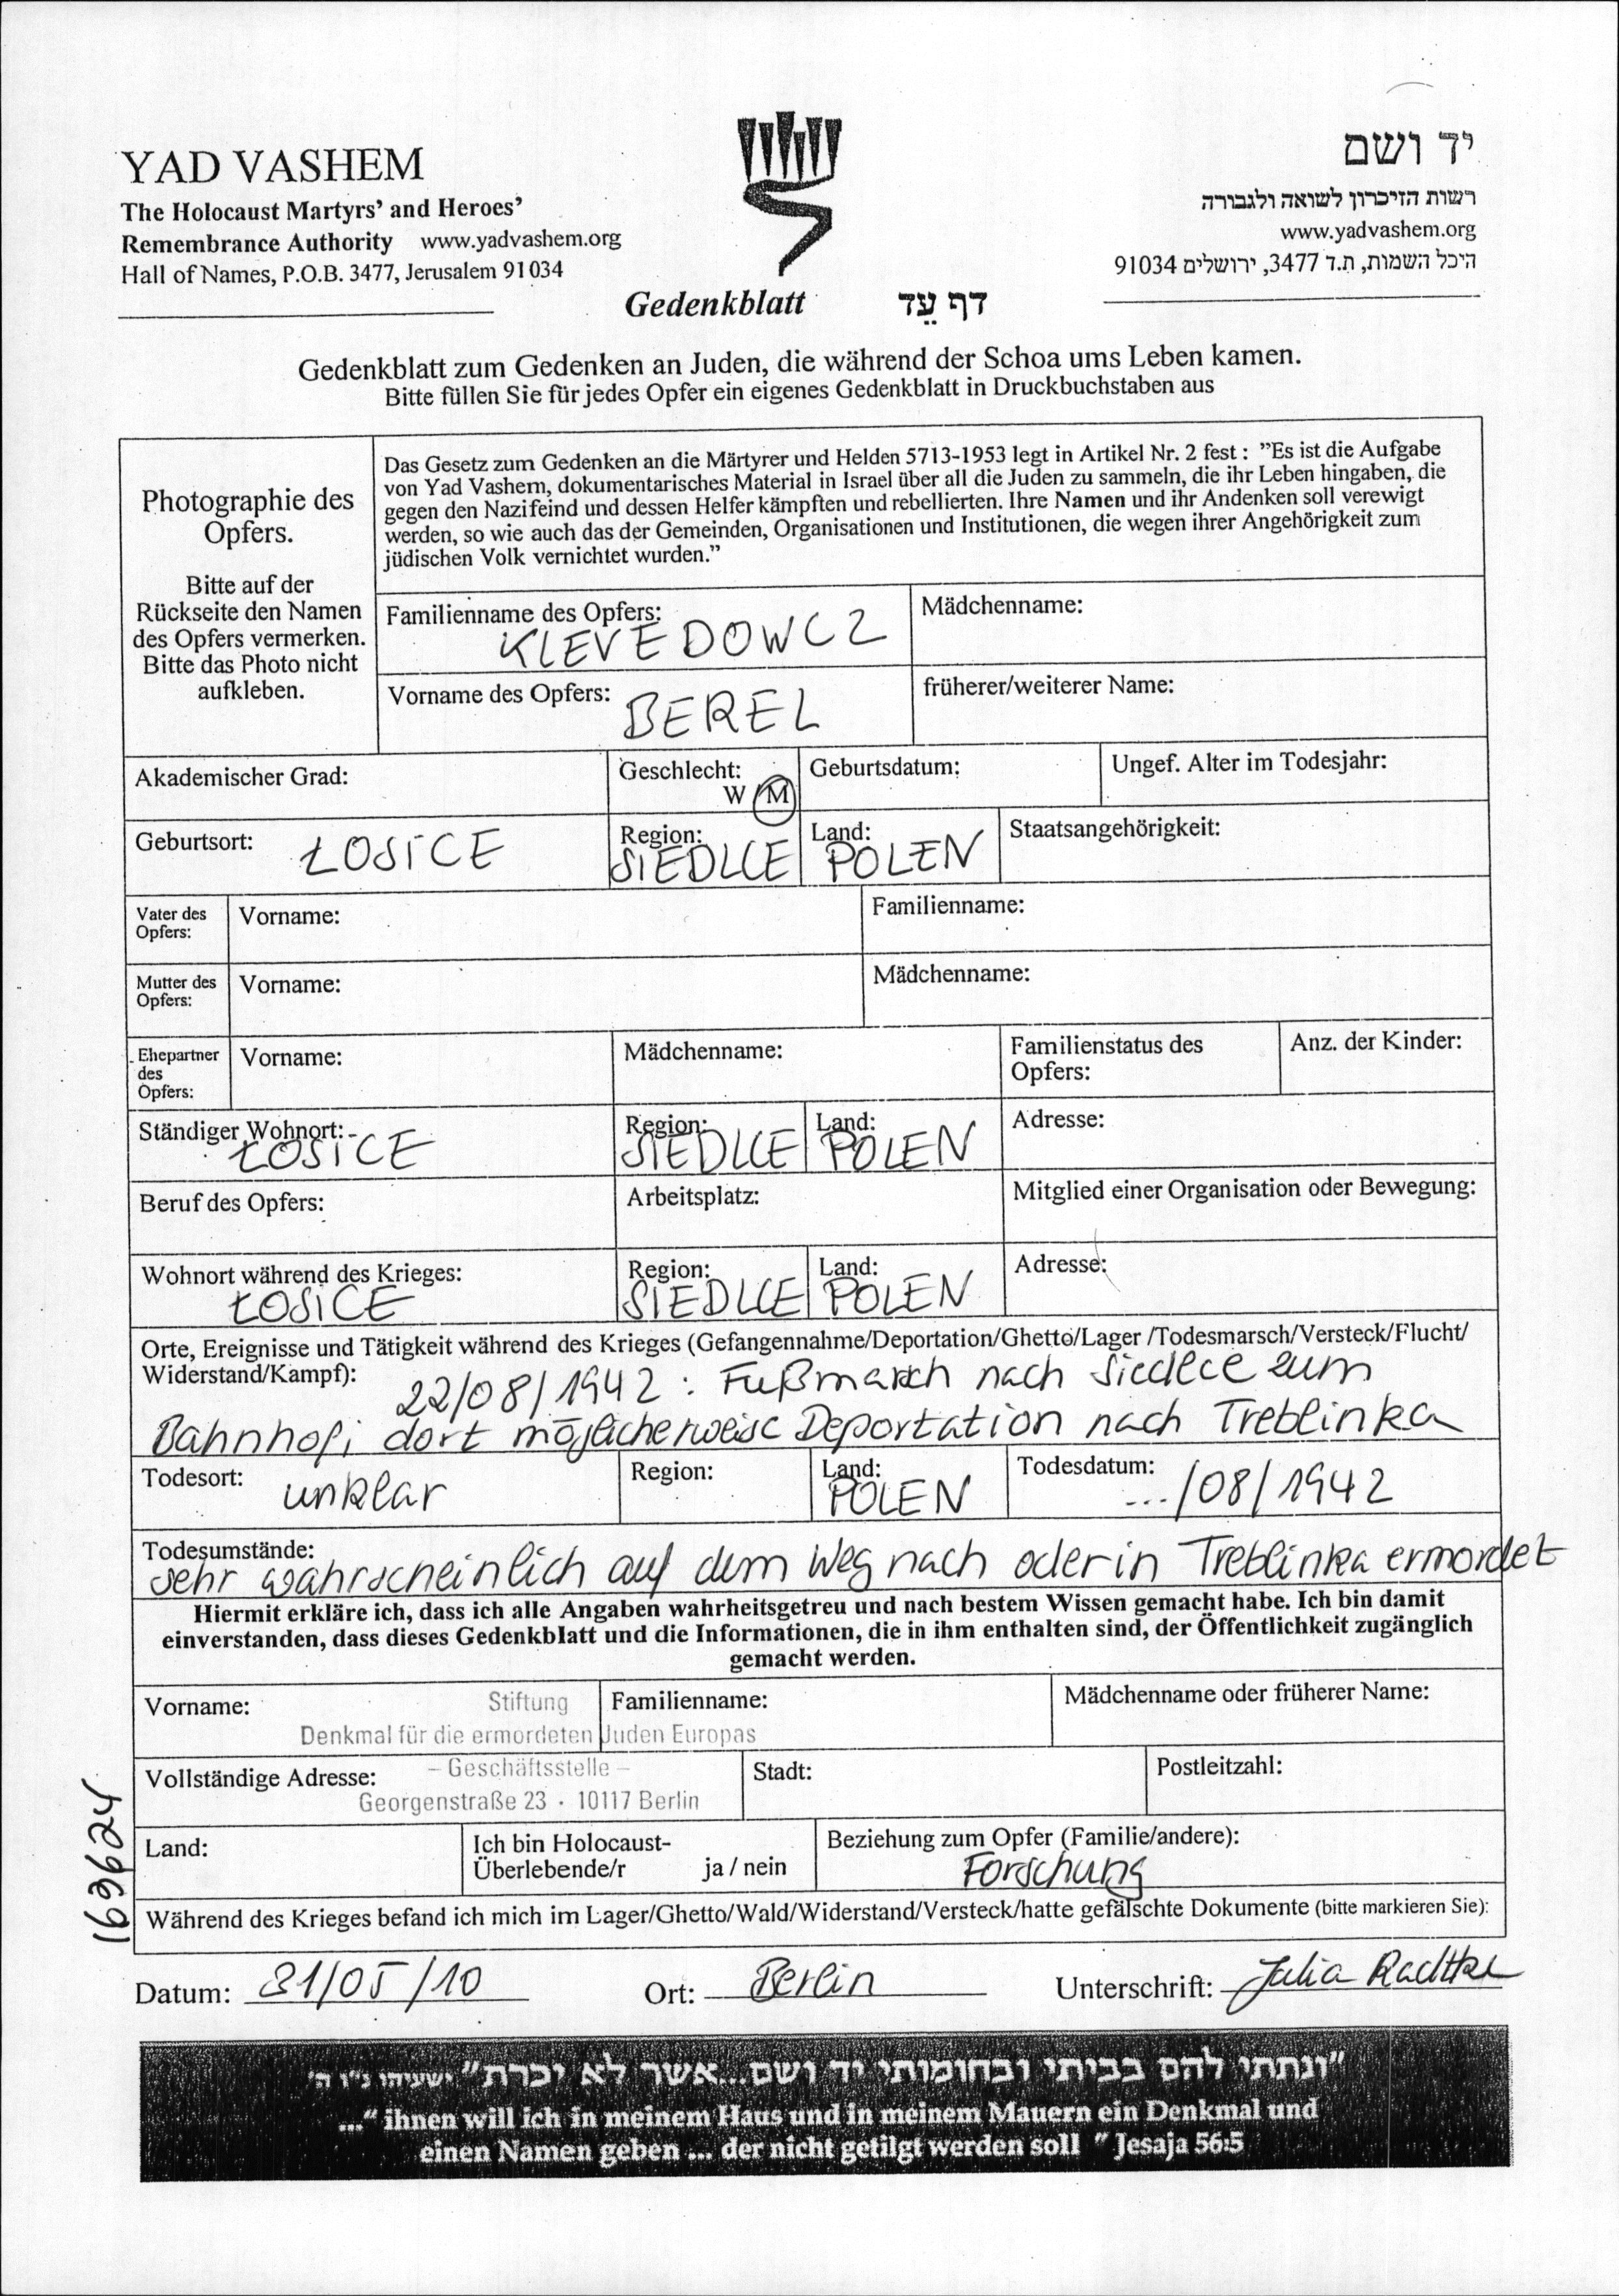 YAD VASHEM
The Holocaust Martyrs' and Heroes'
Remembrance Authority www.yadvashem.org
Hall of Names, P.O.B. 3477, Jerusalem 91034
יד ושם
רשות הזיכרון לשואה ולגבורה
www.yadvashem.org
היכל השמות, ת.ד 3477, ירושלים 91034
Gedenkblatt דף עֵד
Gedenkblatt zum Gedenken an Juden, die während der Schoa ums Leben kamen.
Bitte füllen Sie für jedes Opfer ein eigenes Gedenkblatt in Druckbuchstaben aus
Photographie des
Opfers.
Bitte auf der
Rückseite den Namen
des Opfers vermerken.
Bitte das Photo nicht
aufkleben.
Das Gesetz zum Gedenken an die Märtyrer und Helden 5713-1953 legt in Artikel Nr. 2 fest : "Es ist die Aufgabe
von Yad Vashem, dokumentarisches Material in Israel über all die Juden zu sammeln, die ihr Leben hingaben, die
gegen den Nazifeind und dessen Helfer kämpften und rebellierten. Ihre Namen und ihr Andenken soll verewigt
werden, so wie auch das der Gemeinden, Organisationen und Institutionen, die wegen ihrer Angehörigkeit zum
jüdischen Volk vernichtet wurden."
Familienname des Opfers: KLEVEDOWCZ Mädchenname:
Vorname des Opfers: BEREL früherer/weiterer Name:
Akademischer Grad: Geschlecht: W / M Geburtsdatum: Ungef. Alter im Todesjahr:
Geburtsort: ŁOSICE Region: SIEDLCE Land: POLEN Staatsangehörigkeit:
Vater des Opfers: Vorname: Familienname:
Mutter des Opfers: Vorname: Mädchenname:
Ehepartner des Opfers: Vorname: Mädchenname: Familienstatus des Opfers: Anz. der Kinder:
Ständiger Wohnort: ŁOSICE Region: SIEDLCE Land: POLEN Adresse:
Beruf des Opfers: Arbeitsplatz: Mitglied einer Organisation oder Bewegung:
Wohnort während des Krieges: ŁOSICE Region: SIEDLCE Land: POLEN Adresse:
Orte, Ereignisse und Tätigkeit während des Krieges (Gefangennahme/Deportation/Ghetto/Lager /Todesmarsch/Versteck/Flucht/
Widerstand/Kampf): 22/08/1942 : Fußmarsch nach Siedlce zum
Bahnhof; dort möglicherweise Deportation nach Treblinka
Todesort: unklar Region: Land: POLEN Todesdatum: .../08/1942
Todesumstände:
sehr wahrscheinlich auf dem Weg nach oder in Treblinka ermordet
Hiermit erkläre ich, dass ich alle Angaben wahrheitsgetreu und nach bestem Wissen gemacht habe. Ich bin damit
einverstanden, dass dieses Gedenkblatt und die Informationen, die in ihm enthalten sind, der Öffentlichkeit zugänglich
gemacht werden.
Vorname: Stiftung Familienname: Mädchenname oder früherer Name:
Denkmal für die ermordeten Juden Europas
Vollständige Adresse: – Geschäftsstelle – Stadt: Postleitzahl:
Georgenstraße 23 · 10117 Berlin
Land: Ich bin Holocaust-Überlebende/r ja / nein Beziehung zum Opfer (Familie/andere): Forschung
Während des Krieges befand ich mich im Lager/Ghetto/Wald/Widerstand/Versteck/hatte gefälschte Dokumente (bitte markieren Sie):
163624
Datum: 31/05/10 Ort: Berlin Unterschrift: Julia Radtke
"ונתתי להם בביתי ובחומותי יד ושם...אשר לא יכרת" ישעיהו נ"ו ה'
..." ihnen will ich in meinem Haus und in meinem Mauern ein Denkmal und
einen Namen geben ... der nicht getilgt werden soll " Jesaja 56:5